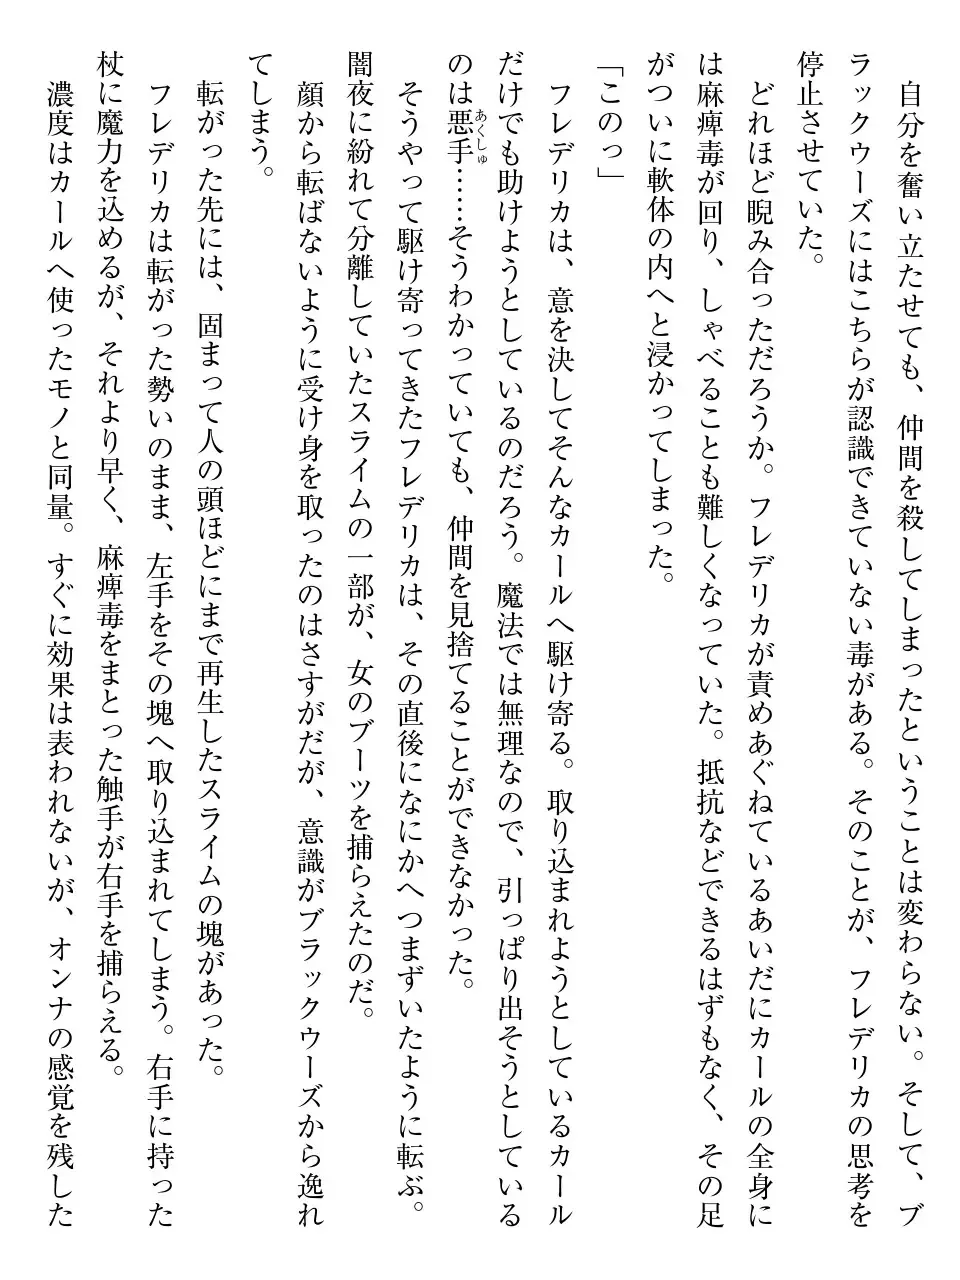 自分を奮い立たせても、仲間を殺してしまったということは変わらない。そして、ブ
ラックウーズにはこちらが認識できていない毒がある。そのことが、フレデリカの思考を
停止させていた。
どれほど睨み合っただろうか。フレデリカが責めあぐねているあいだにカールの全身に
は麻痺毒が回り、しゃべることも難しくなっていた。抵抗などできるはずもなく、その足
がついに軟体の内へと浸かってしまった。
「このっ」
フレデリカは、意を決してそんなカールへ駆け寄る。取り込まれようとしているカール
だけでも助けようとしているのだろう。魔法では無理なので、引っぱり出そうとしている
のは悪手あくしゅ……そうわかっていても、仲間を見捨てることができなかった。
そうやって駆け寄ってきたフレデリカは、その直後になにかへつまずいたように転ぶ。
闇夜に紛れて分離していたスライムの一部が、女のブーツを捕らえたのだ。
顔から転ばないように受け身を取ったのはさすがだが、意識がブラックウーズから逸れ
てしまう。
転がった先には、固まって人の頭ほどにまで再生したスライムの塊があった。
フレデリカは転がった勢いのまま、左手をその塊へ取り込まれてしまう。右手に持った
杖に魔力を込めるが、それより早く、麻痺毒をまとった触手が右手を捕らえる。
濃度はカールへ使ったモノと同量。すぐに効果は表われないが、オンナの感覚を残した